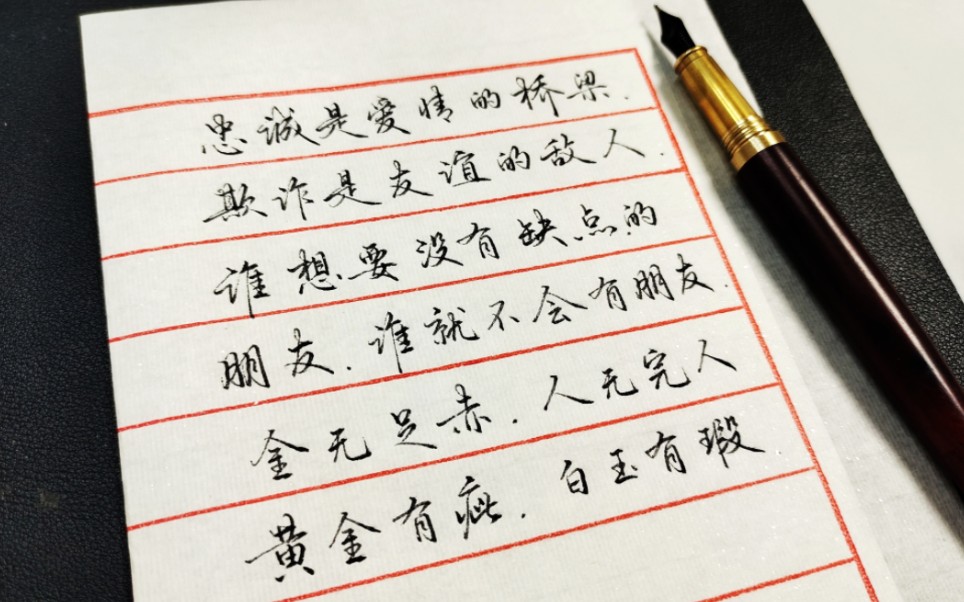 忠诚是爱情的桥梁.
欺诈是友谊的敌人.
谁想要没有缺点的
朋友.谁就不会有朋友.
金无足赤.人无完人
黄金有疵.白玉有瑕